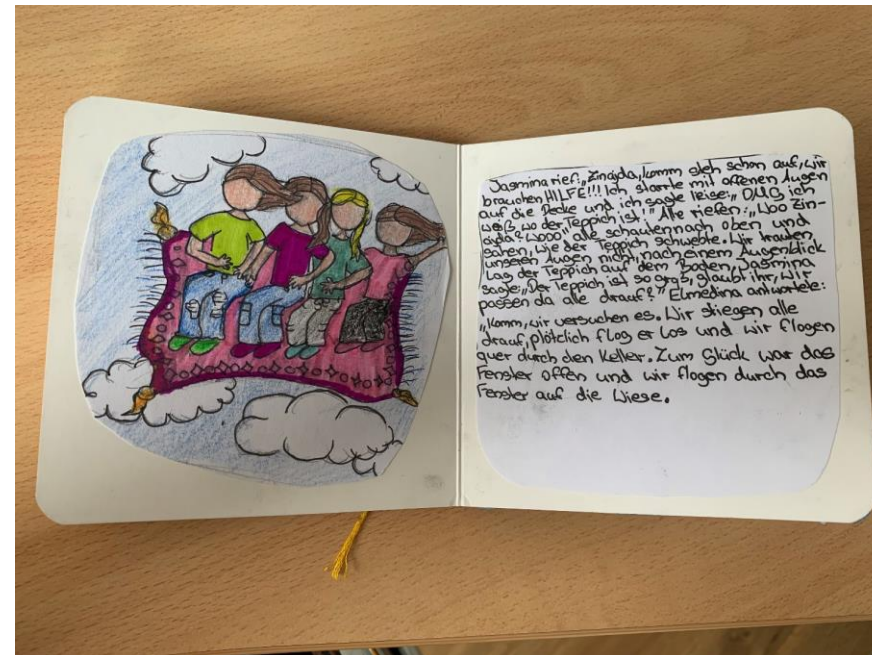 Jasmina rief: „Znajda, komm steh schon auf, wir
brauchen HILFE!!! Ich starrte mit offenen Augen
auf die Decke und ich sagte leise: „ OMG ich
weiß, wo der Teppich ist!" Alle riefen: „Woo Zin-
ajda? Wooo" alle schauten nach oben und
sahen, wie der Teppich schwebte. Wir trauten
unseren Augen nicht, nach einem Augenblick
lag der Teppich auf dem Boden, Jasmina
sagte: „Der Teppich ist so groß, glaubt ihr, wir
passen da alle drauf?" Elmedina antwortete:
„Komm, wir versuchen es. Wir stiegen alle
drauf, plötzlich flog er los und wir flogen
quer durch den Keller. Zum Glück war das
Fenster offen und wir flogen durch das
Fenster auf die Wiese.